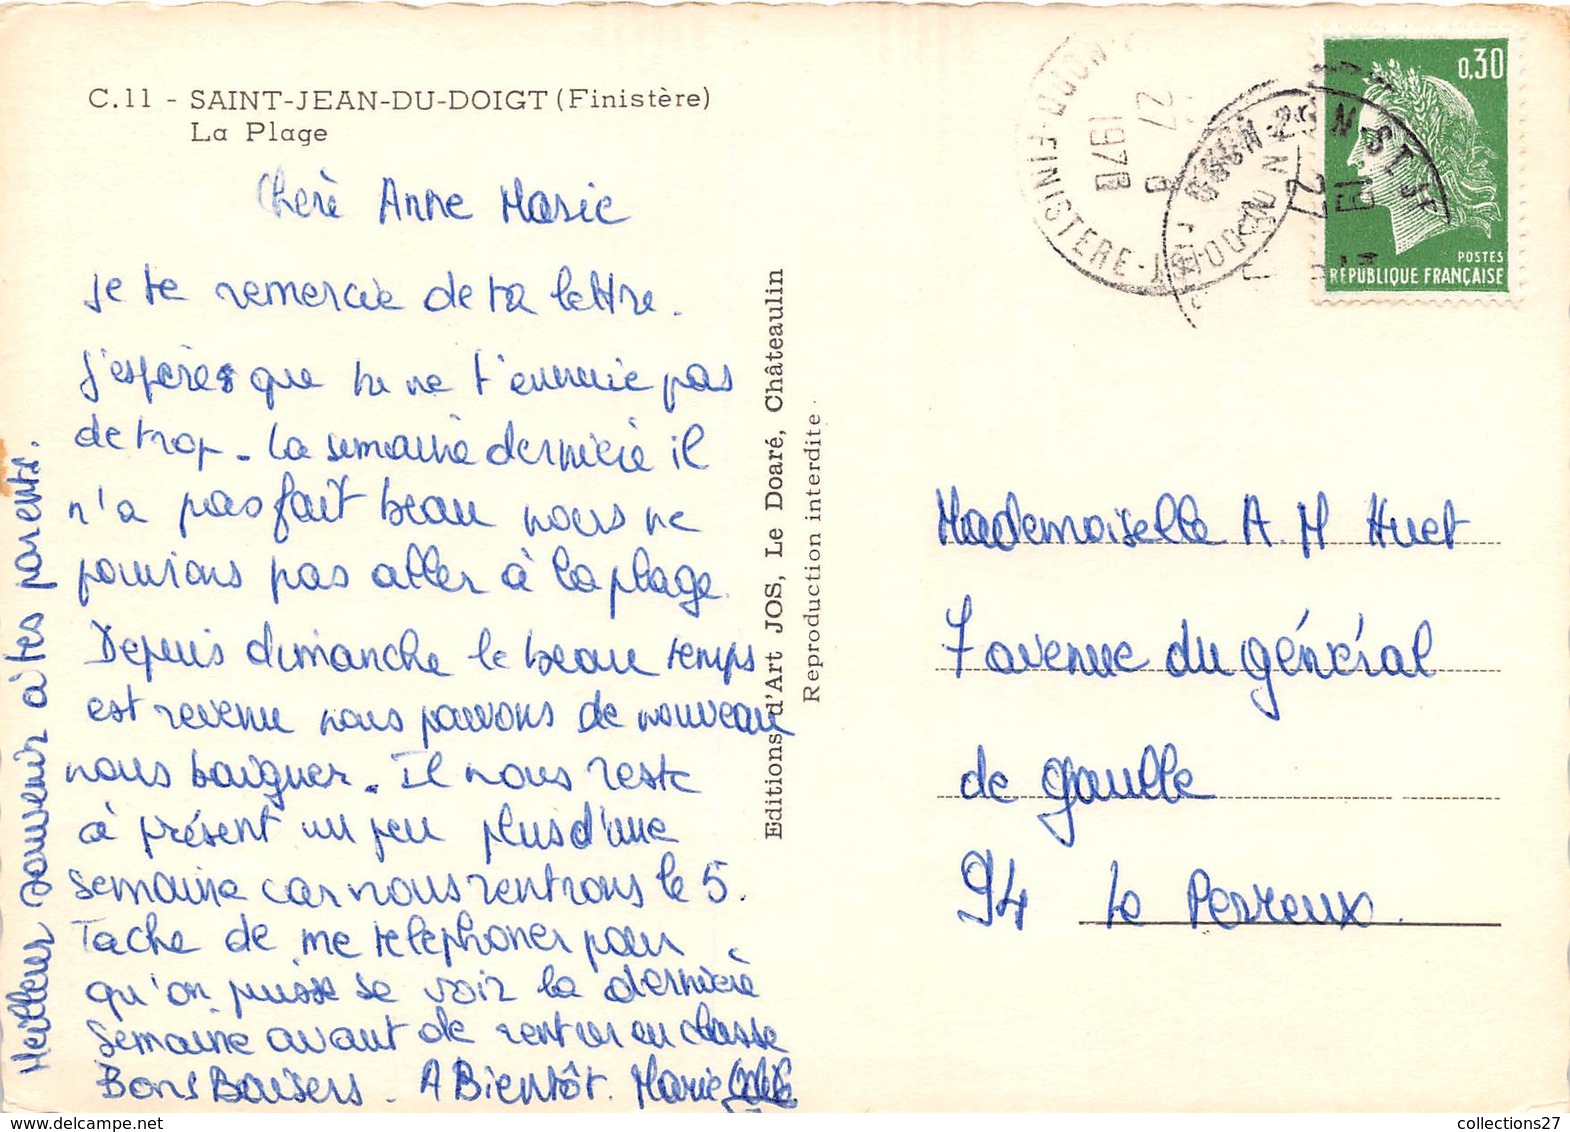 C.11 - SAINT-JEAN-DU-DOIGT (Finistère)
La Plage
Chère Anne Marie
je te remercie de ta lettre.
J'espères que tu ne t'ennuie pas
de trop. La semaine dernière il
n'a pas fait beau nous ne
pouvions pas aller à la plage.
Depuis dimanche le beau temps
est revenu nous pouvons de nouveau
nous baigner. Il nous reste
à présent un peu plus d'une
semaine car nous rentrons le 5.
Tache de me telephoner pour
qu'on puisse se voir la dernière
semaine avant de rentrer en classe
Bons Baisers. A Bientôt. Marie
Meilleur souvenir à tes parents.
Editions d'Art JOS, Le Doaré, Châteaulin
Reproduction interdite
0,30
POSTES
RÉPUBLIQUE FRANÇAISE
27
8
1970
FINISTERE
Mademoiselle A M Huet
7 avenue du général
de Gaulle
94 Le Perreux.
collections27